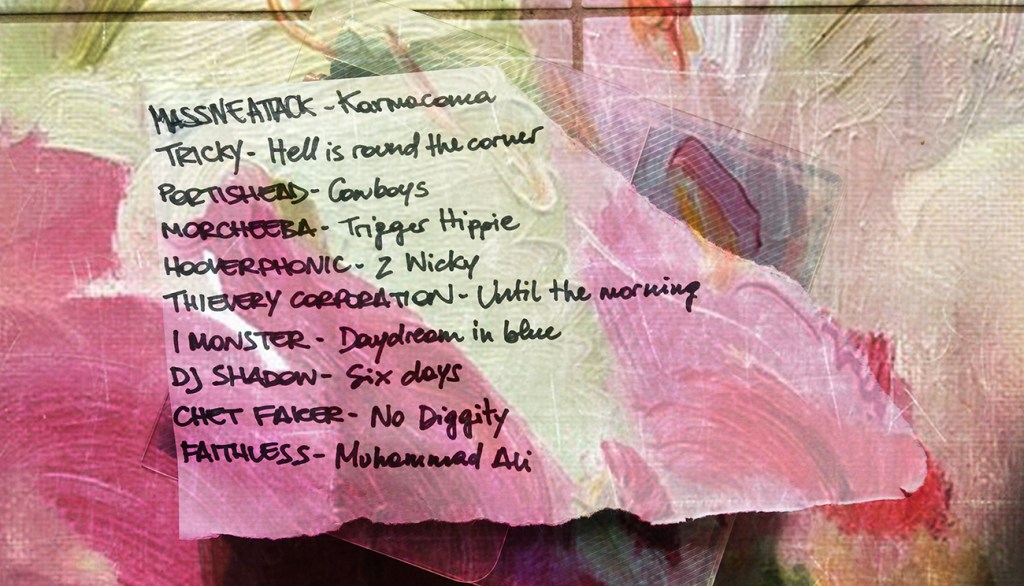 MASSIVE ATTACK - Karmacoma
TRICKY - Hell is round the corner
PORTISHEAD - Cowboys
MORCHEEBA - Trigger Hippie
HOOVERPHONIC - 2 Wicky
THIEVERY CORPORATION - Until the morning
I MONSTER - Daydream in blue
DJ SHADOW - Six days
CHET FAKER - No Diggity
FAITHLESS - Muhammad Ali